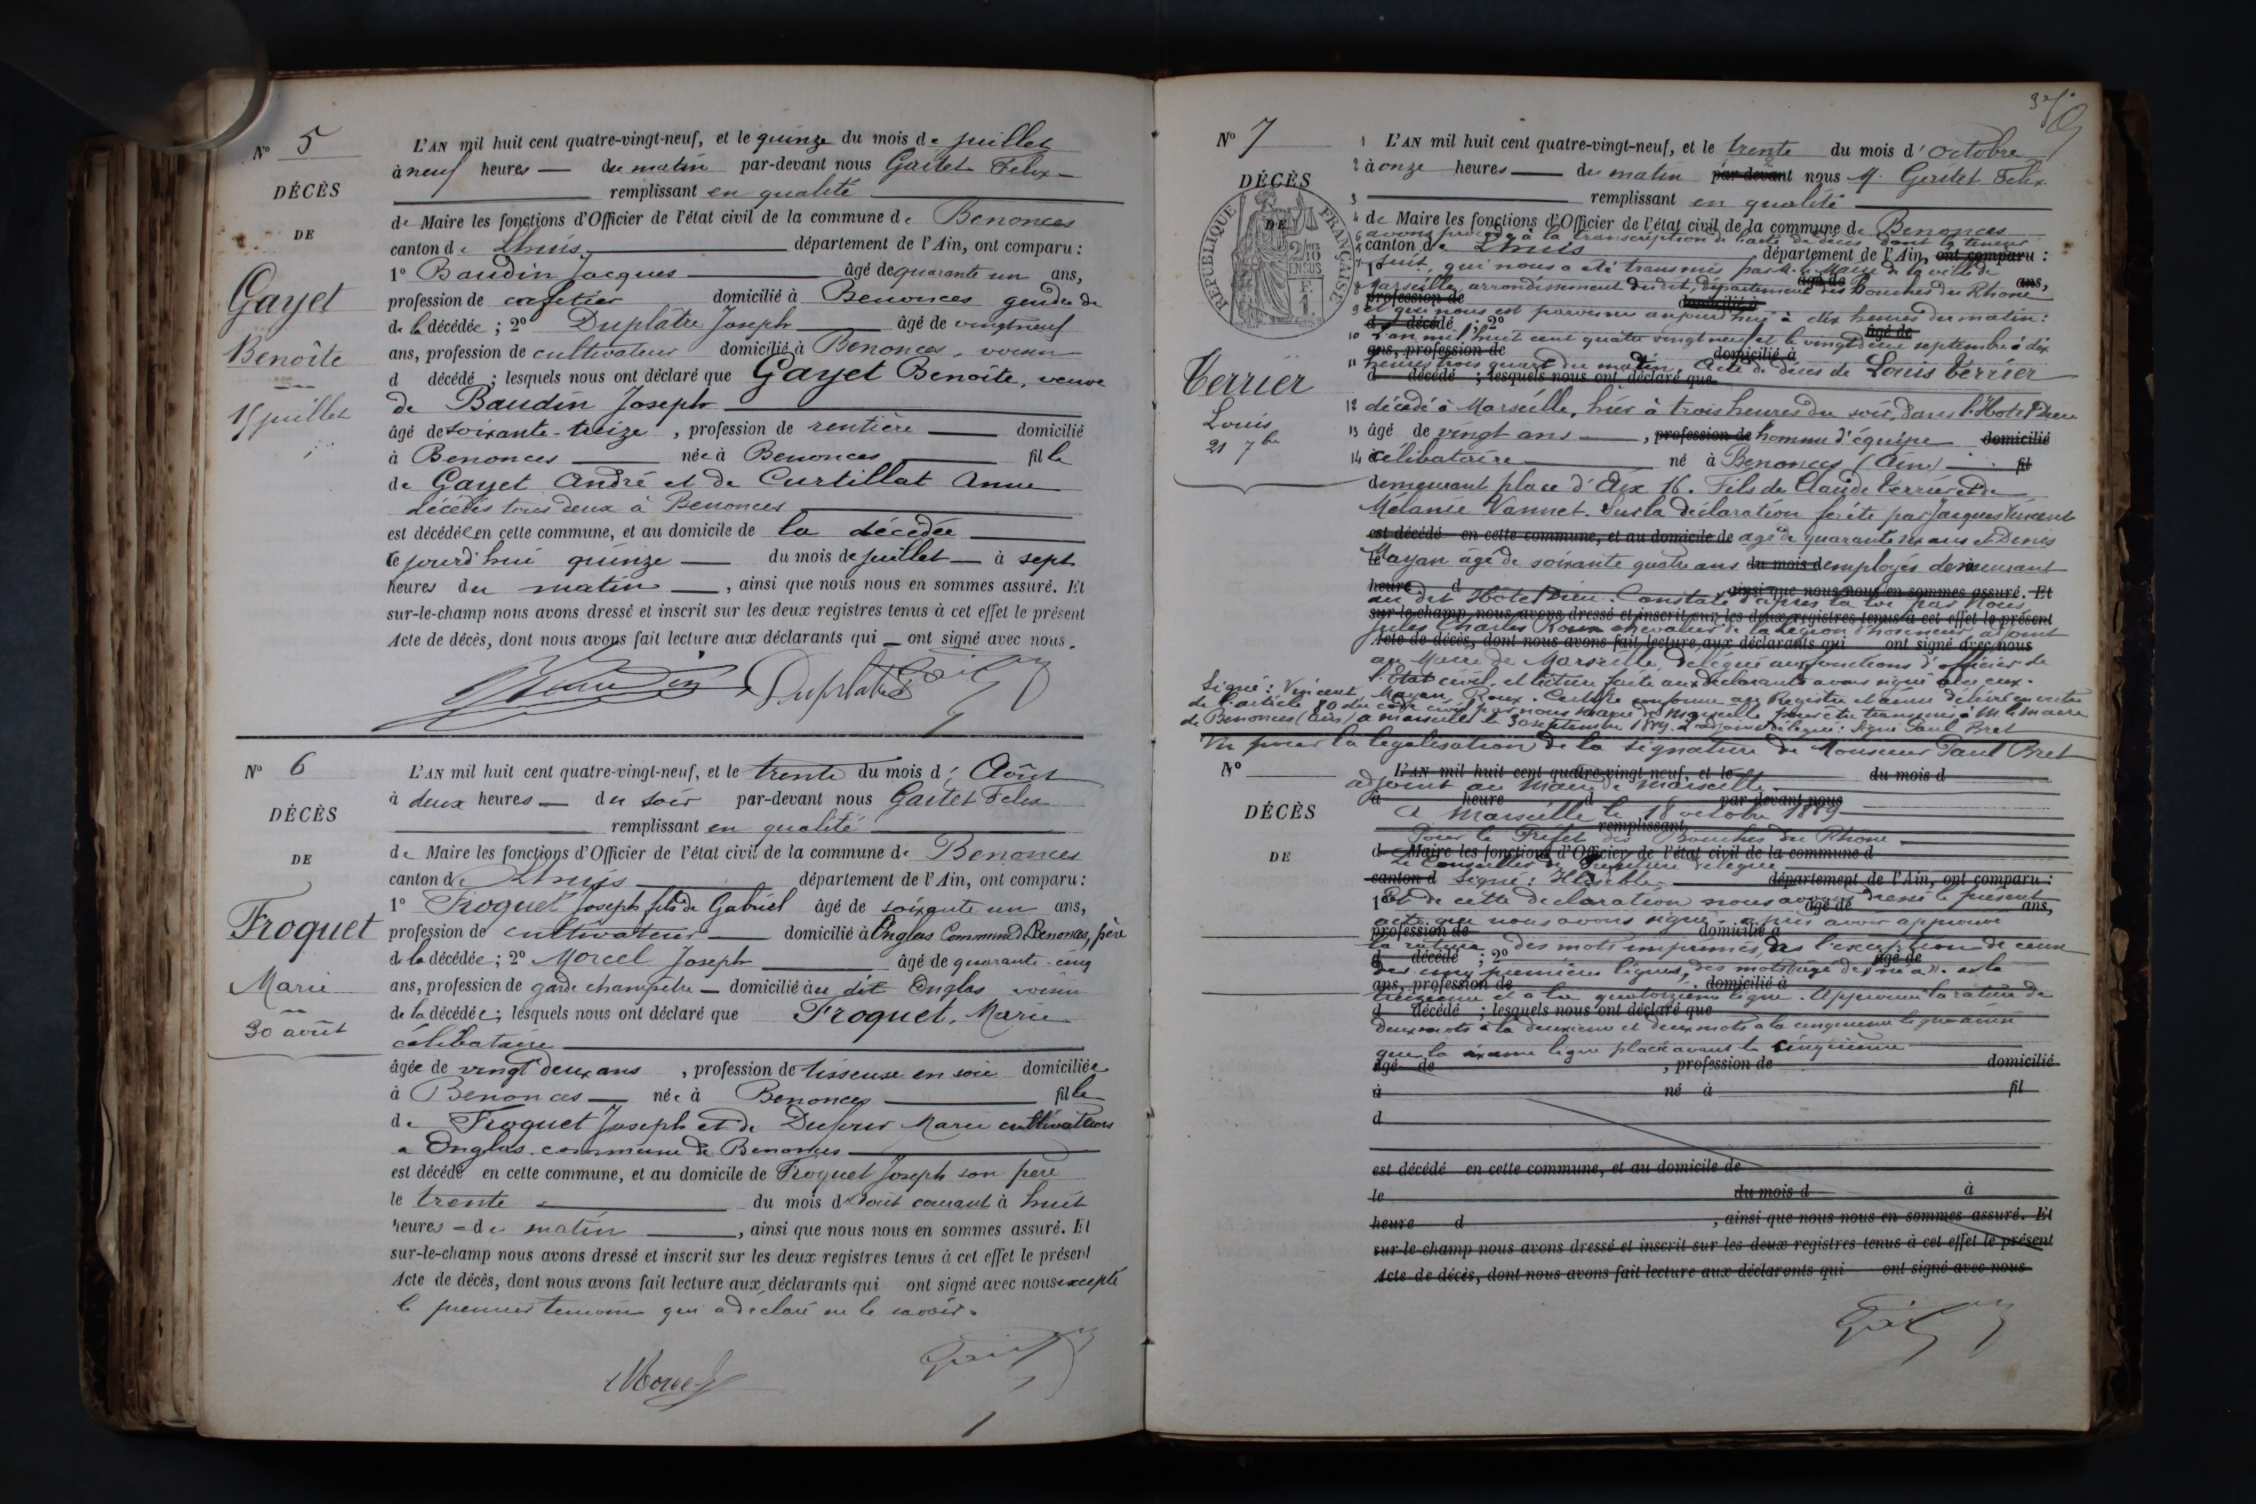 N° 5
DÉCÈS
DE
Gayet
Benoîte
15 juillet
L'AN mil huit cent quatre-vingt-neuf, et le quinze du mois de juillet
à neuf heures du matin par-devant nous Felix
remplissant en qualité
de Maire les fonctions d'Officier de l'état civil de la commune de Benonces
canton de Lhuis département de l'Ain, ont comparu :
1° Baudin Jacques âgé de quarante un ans,
profession de cafetier domicilié à Benonces gendre de
de la décédée ; 2° Duplâtre Joseph âgé de vingt neuf
ans, profession de cultivateur domicilié à Benonces, voisin
d décédé ; lesquels nous ont déclaré que Gayet Benoîte, veuve
de Baudin Joseph
âgé de soixante-treize, profession de rentière domicilié
à Benonces née à Benonces fille
de Gayet André et de Curtillat Anne
décédés tous deux à Benonces
est décédée en cette commune, et au domicile de la décédée
ce jourd'hui quinze du mois de juillet à sept
heures du matin, ainsi que nous nous en sommes assuré. Et
sur-le-champ nous avons dressé et inscrit sur les deux registres tenus à cet effet le présent
Acte de décès, dont nous avons fait lecture aux déclarants qui ont signé avec nous.
Baudin Duplatre
N° 6
DÉCÈS
DE
Froquet
Marie
30 août
L'AN mil huit cent quatre-vingt-neuf, et le trente du mois d' Août
à deux heures du soir par-devant nous Felix
remplissant en qualité
de Maire les fonctions d'Officier de l'état civil de la commune de Benonces
canton de Lhuis département de l'Ain, ont comparu :
1° Froquet Joseph fils de Gabriel âgé de soixante un ans,
profession de cultivateur domicilié à Onglas Commune de Benonces, père
de la décédée ; 2° Morcel Joseph âgé de quarante-cinq
ans, profession de garde champêtre domicilié au dit Onglas voisin
de la décédée ; lesquels nous ont déclaré que Froquet, Marie
célibataire
âgée de vingt deux ans, profession de tisseuse en soie domiciliée
à Benonces née à Benonces fille
de Froquet Joseph et de Dufour Marie cultivateurs
a Onglas commune de Benonces
est décédé en cette commune, et au domicile de Froquet Joseph son père
le trente du mois d'août courant à huit
heures du matin, ainsi que nous nous en sommes assuré. Et
sur-le-champ nous avons dressé et inscrit sur les deux registres tenus à cet effet le présent
Acte de décès, dont nous avons fait lecture aux déclarants qui ont signé avec nous excepté
le premier temoin qui a declaré ne le savoir.
Morcel
N° 7
DÉCÈS
DE
RÉPUBLIQUE FRANÇAISE
Terrier
Louis
21 7bre
1 L'AN mil huit cent quatre-vingt-neuf, et le trente du mois d' octobre
2 à onze heures du matin par-devant nous M. Felix
3 remplissant en qualité
4 de Maire les fonctions d'Officier de l'état civil de la commune de Benonces
6 avons procédé à la transcription de l'acte de décès dont la teneur
5 canton de Lhuis département de l'Ain, ont comparu :
7 1° suit, qui nous a été transmis par M. le Maire de la ville de
âgé de ans,
8 Marseille, arrondissement du dit, département des Bouches du Rhône
profession de domicilié à
9 et qui nous est parvenu aujourd'hui à dix heures du matin :
d décédé ; 2° âgé de
10 L'an mil huit cent quatre vingt neuf et le vingt deux septembre à dix
ans, profession de domicilié à
11 heures trois quart du matin. Acte de décès de Louis Terrier
d décédé ; lesquels nous ont déclaré que
12 décédé à Marseille, hier à trois heures du soir, dans l'Hotel Dieu
13 âgé de vingt ans, profession de homme d'équipe domicilié
14 à célibataire né à Benonces (Ain) fil
demeurant place d'Aix 16. Fils de Claude Terrier et de
Mélanie Vannet. Sur la déclaration faite par Jacques Vincent
est décédé en cette commune, et au domicile de agé de quarante six ans et Denis
le Mayan âgé de soixante quatre ans du mois d employés demeurant
heure d ainsi que nous nous en sommes assuré. Et
au dit Hotel Dieu. Constaté d'après la loi par Nous
sur-le-champ nous avons dressé et inscrit sur les deux registres tenus à cet effet le présent
Jules Charles Roux chevalier de la Légion d'honneur adjoint
Acte de décès, dont nous avons fait lecture aux déclarants qui ont signé avec nous
au Maire de Marseille, délégué aux fonctions d'officier de
l'état civil, et lecture faite aux declarants avons signé avec eux.
Signé : Vincent, Mayan, Roux. Certifié conforme au Registre et ainsi délivré en vertu
de l'article 80 du code civil par nous maire de Marseille pour être transmis à M. le Maire
de Benonces (Ain) a marseille le 30 septembre 1889. L'adjoint délégué : Signé Paul Bret
Vu pour la légalisation de la signature de Monsieur Paul Bret
N°
DÉCÈS
DE
L'AN mil huit cent quatre-vingt-neuf, et le du mois d
adjoint au Maire de Marseille
à heure d par-devant nous
A Marseille le 18 octobre 1889
remplissant
Pour le Préfet des Bouches du Rhône
d Maire les fonctions d'Officier de l'état civil de la commune d
Le Conseiller de Préfecture délégué
canton d Signé : département de l'Ain, ont comparu :
1° Et de cette declaration nous avons dressé le présent
âgé de ans,
acte que nous avons signé, après avoir approuvé
profession de domicilié à
la rature des mots imprimés, à l'exception de ceux
d décédé ; 2° âgé de
des cinq premières lignes, des mots âgé de, né à, a la
ans, profession de domicilié à
treizieme et a la quatorzième ligne. Approuvé la rature de
d décédé ; lesquels nous ont déclaré que
deux mots à la deuxieme et deux mots a la cinquieme ligne ainsi
que la sixieme ligne placé avant la cinquieme
âgé de , profession de domicilié
à né à fil
d
est décédé en cette commune, et au domicile de
le du mois d à
heure d , ainsi que nous nous en sommes assuré. Et
sur-le-champ nous avons dressé et inscrit sur les deux registres tenus à cet effet le présent
Acte de décès, dont nous avons fait lecture aux déclarants qui ont signé avec nous